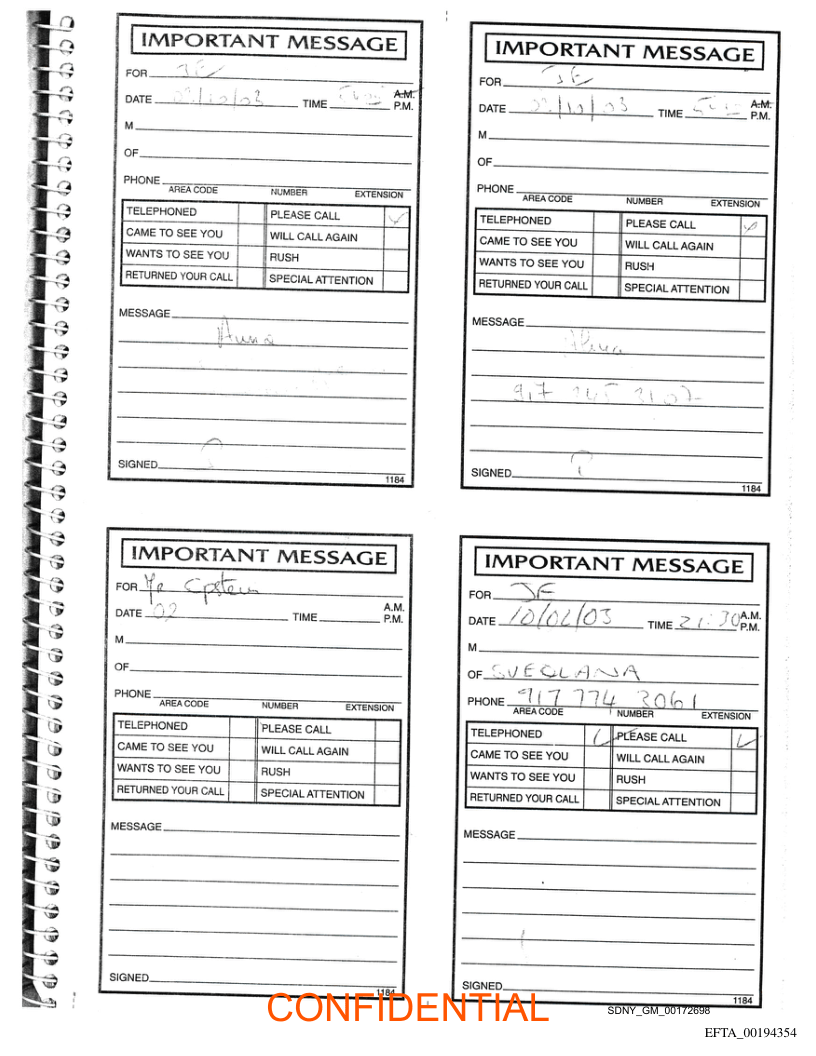 IMPORTANT MESSAGE
FOR JE
DATE 02/10/03 TIME A.M. P.M.
M
OF
PHONE
AREA CODE NUMBER EXTENSION
TELEPHONED PLEASE CALL ✓
CAME TO SEE YOU WILL CALL AGAIN
WANTS TO SEE YOU RUSH
RETURNED YOUR CALL SPECIAL ATTENTION
MESSAGE
Anna
SIGNED
1184
IMPORTANT MESSAGE
FOR JE
DATE 02/10/03 TIME A.M. P.M.
M
OF
PHONE
AREA CODE NUMBER EXTENSION
TELEPHONED PLEASE CALL ✓
CAME TO SEE YOU WILL CALL AGAIN
WANTS TO SEE YOU RUSH
RETURNED YOUR CALL SPECIAL ATTENTION
MESSAGE
917 345 3107
SIGNED
1184
IMPORTANT MESSAGE
FOR Mr Epstein
DATE 02 TIME A.M. P.M.
M
OF
PHONE
AREA CODE NUMBER EXTENSION
TELEPHONED PLEASE CALL
CAME TO SEE YOU WILL CALL AGAIN
WANTS TO SEE YOU RUSH
RETURNED YOUR CALL SPECIAL ATTENTION
MESSAGE
SIGNED
1184
IMPORTANT MESSAGE
FOR JE
DATE 10/02/03 TIME 21:30 A.M. P.M.
M
OF SVEQLANA
PHONE 917 774 3061
AREA CODE NUMBER EXTENSION
TELEPHONED ✓ PLEASE CALL ✓
CAME TO SEE YOU WILL CALL AGAIN
WANTS TO SEE YOU RUSH
RETURNED YOUR CALL SPECIAL ATTENTION
MESSAGE
SIGNED
1184
CONFIDENTIAL
SDNY_GM_00172698
EFTA_00194354